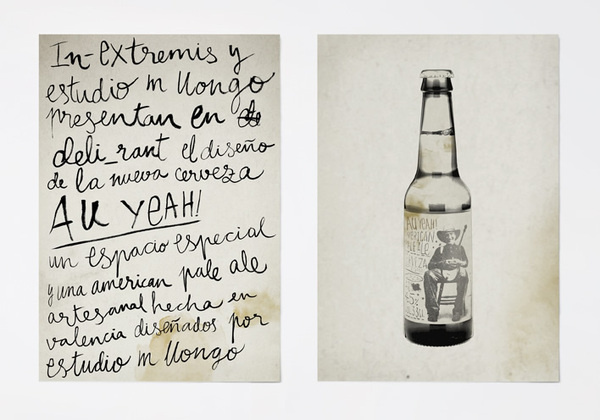 In-extremis y
estudio m llongo
presentan en de
deli_rant el diseño
de la nueva cerveza
AU YEAH!
un espacio especial
y una american pale ale
artesanal hecha en
valencia diseñados por
estudio m llongo
AU YEAH!
AMERICAN
PALE ALE